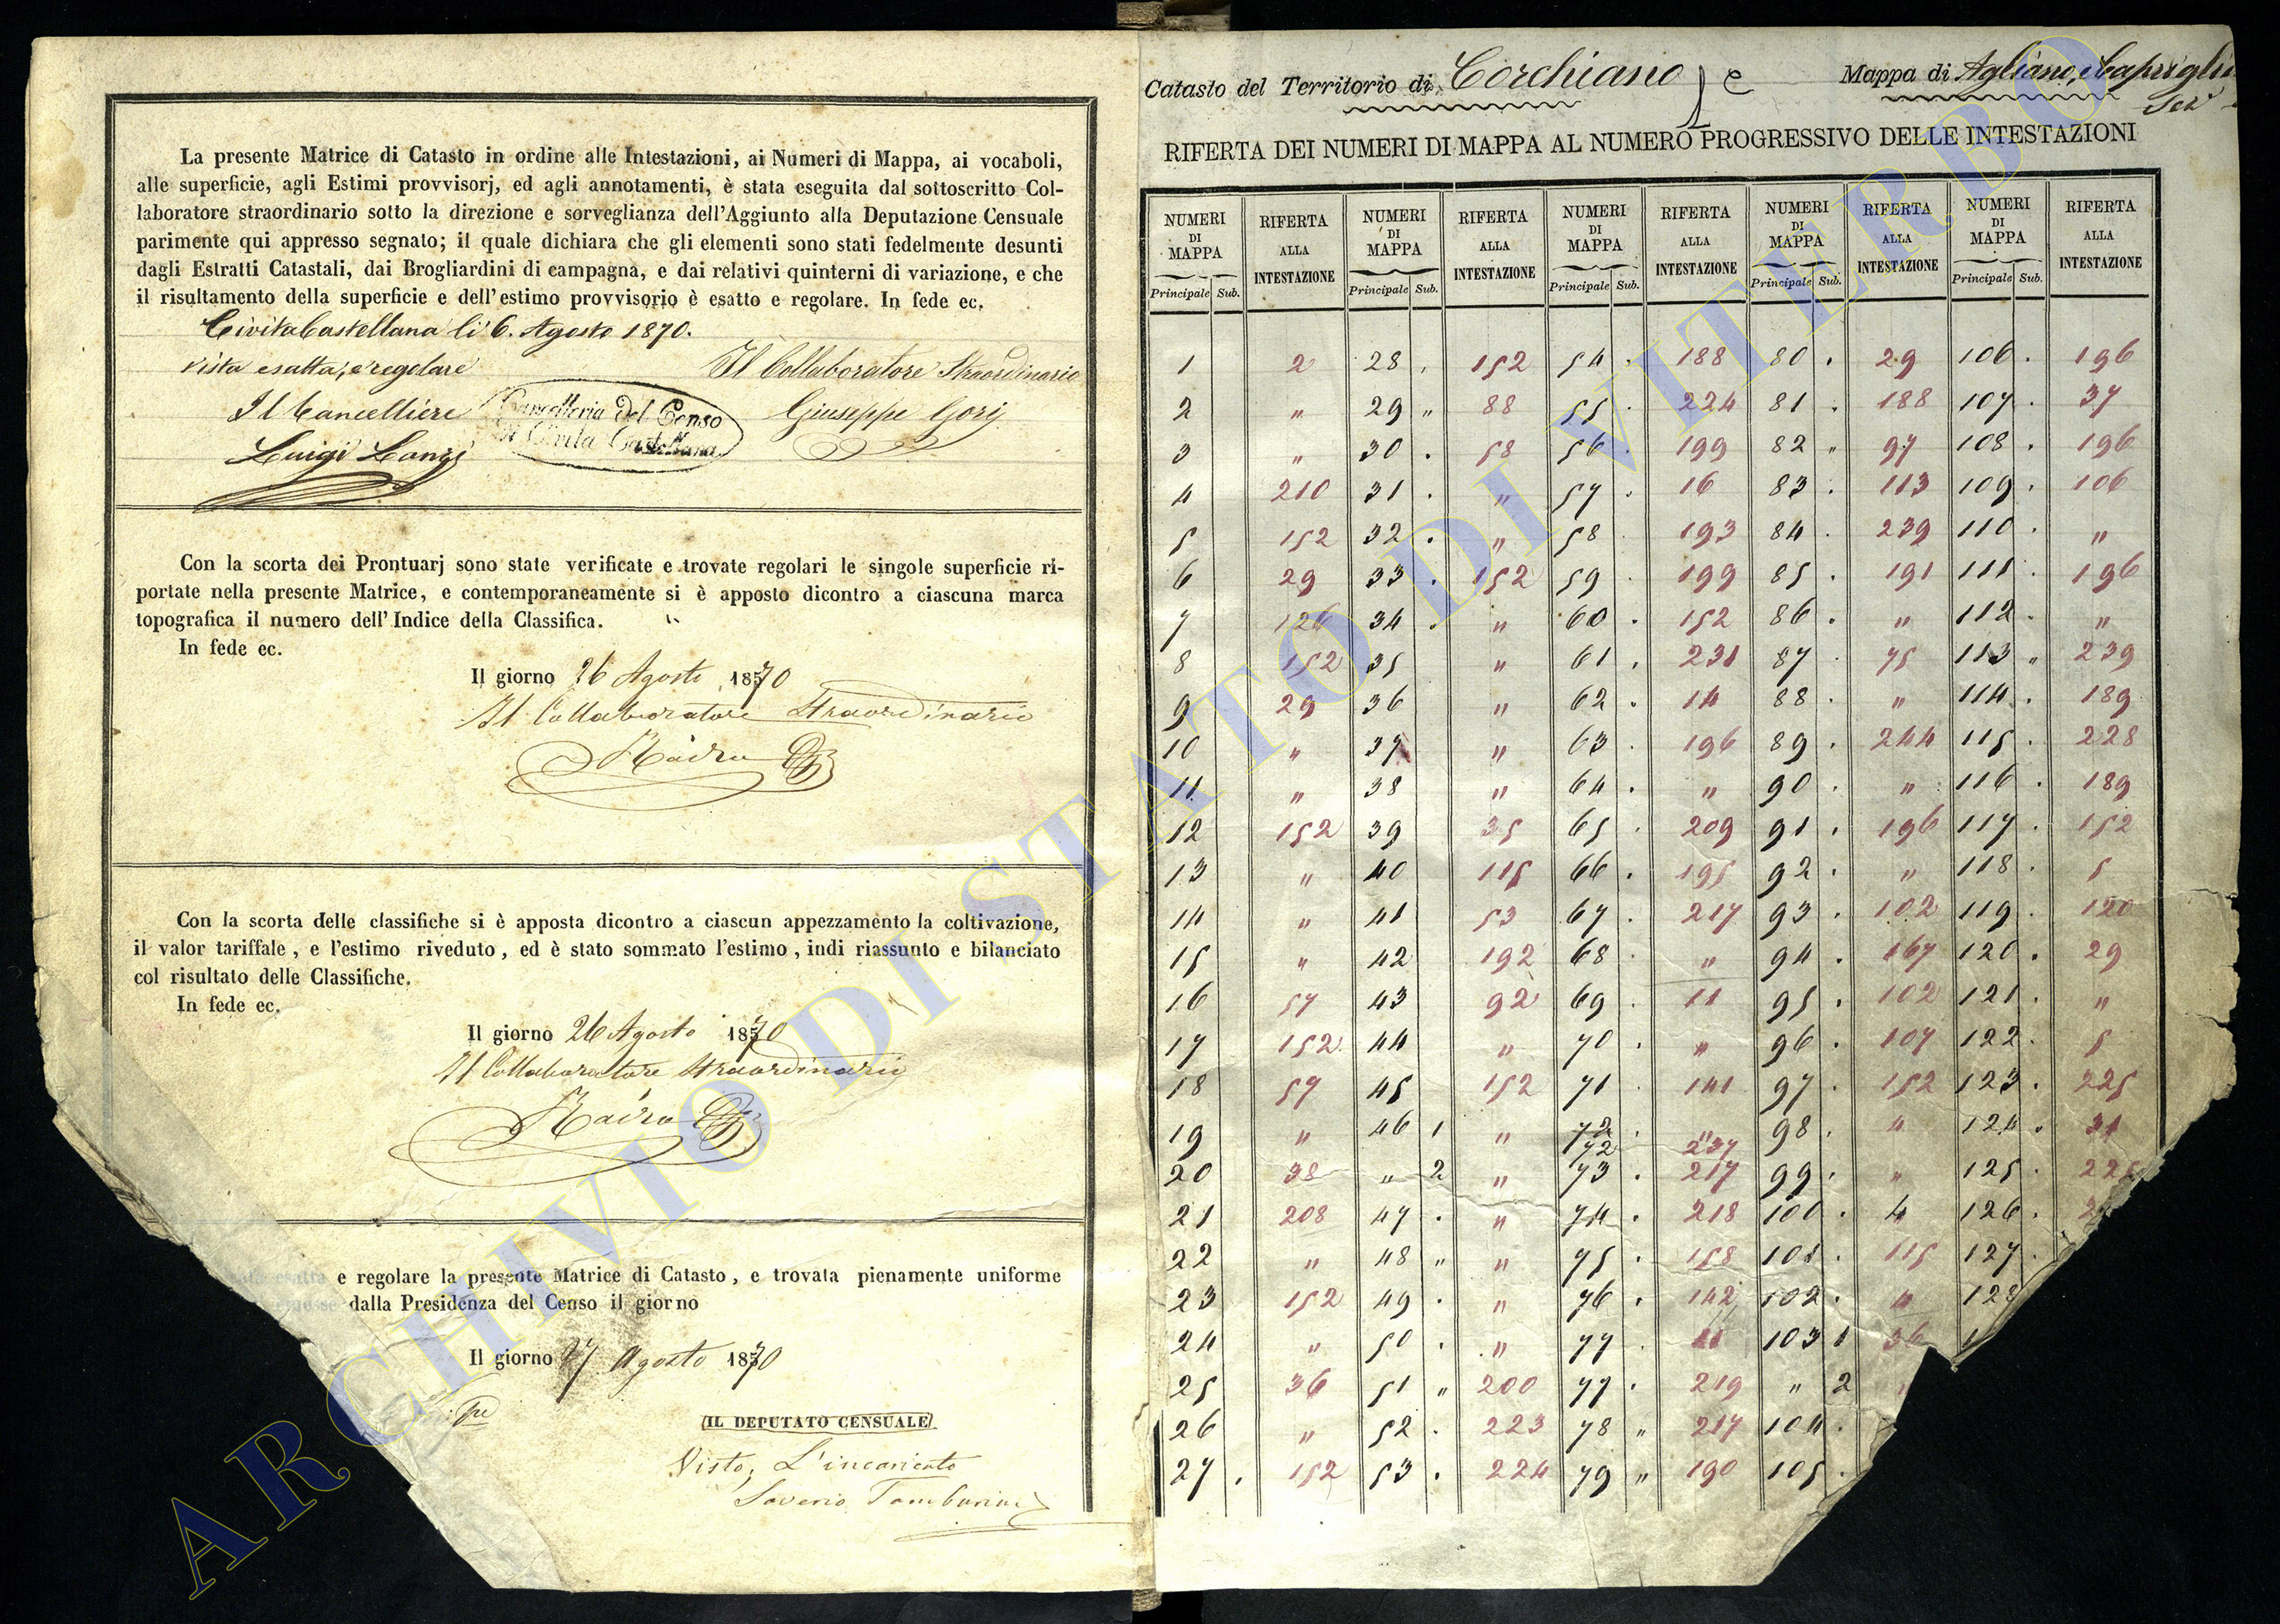 La presente Matrice di Catasto in ordine alle Intestazioni, ai Numeri di Mappa, ai vocaboli,
alle superficie, agli Estimi provvisorj, ed agli annotamenti, è stata eseguita dal sottoscritto Col-
laboratore straordinario sotto la direzione e sorveglianza dell'Aggiunto alla Deputazione Censuale
parimente qui appresso segnato; il quale dichiara che gli elementi sono stati fedelmente desunti
dagli Estratti Catastali, dai Brogliardini di campagna, e dai relativi quinterni di variazione, e che
il risultamento della superficie e dell'estimo provvisorio è esatto e regolare. In fede ec.
Civita Castellana li 6. Agosto 1870.
Vista esatta, e regolare Il Collaboratore Straordinario
Il Cancelliere Cancelleria Del Censo Giuseppe Gorj
Luigi Di Civita Castellana
Con la scorta dei Prontuarj sono state verificate e trovate regolari le singole superficie ri-
portate nella presente Matrice, e contemporaneamente si è apposto dicontro a ciascuna marca
topografica il numero dell'Indice della Classifica.
In fede ec.
Il giorno 26 Agosto 1870
Il Collaboratore Straordinario
Con la scorta delle classifiche si è apposta dicontro a ciascun appezzamento la coltivazione,
il valor tariffale, e l'estimo riveduto, ed è stato sommato l'estimo, indi riassunto e bilanciato
col risultato delle Classifiche.
In fede ec.
Il giorno 26 Agosto 1870
Il Collaboratore Straordinario
esatta e regolare la presente Matrice di Catasto, e trovata pienamente uniforme
dalla Presidenza del Censo il giorno
Il giorno 27 Agosto 1870
IL DEPUTATO CENSUALE
Visto, L'incaricato
Saverio Tamburini
Catasto del Territorio di Corchiano e Mappa di Agliano, e
RIFERTA DEI NUMERI DI MAPPA AL NUMERO PROGRESSIVO DELLE INTESTAZIONI
NUMERI DI MAPPA RIFERTA ALLA INTESTAZIONE NUMERI DI MAPPA RIFERTA ALLA INTESTAZIONE NUMERI DI MAPPA RIFERTA ALLA INTESTAZIONE NUMERI DI MAPPA RIFERTA ALLA INTESTAZIONE NUMERI DI MAPPA RIFERTA ALLA INTESTAZIONE
Principale Sub. Principale Sub. Principale Sub. Principale Sub. Principale Sub.
1 2 28 152 54 188 80 29 106 196
2 " 29 " 88 55 224 81 188 107 37
3 " 30 58 56 199 82 " 97 108 196
4 210 31 " 57 16 83 113 109 106
5 152 32 " 58 193 84 239 110 "
6 29 33 152 59 199 85 191 111 196
7 126 34 " 60 152 86 " 112 "
8 152 35 " 61 231 87 75 113 " 239
9 29 36 " 62 14 88 " 114 189
10 " 37 " 63 196 89 244 115 228
11 " 38 " 64 " 90 " 116 189
12 152 39 35 65 209 91 196 117 152
13 " 40 115 66 195 92 " 118 5
14 " 41 53 67 217 93 102 119 120
15 " 42 192 68 " 94 167 120 29
16 57 43 92 69 11 95 102 121 "
17 152 44 " 70 " 96 107 122 5
18 57 45 152 71 141 97 152 123 225
19 " 46 1 " 72 " 98 " 124 31
72 237
20 38 " 2 " 73 217 99 " 125
21 208 47 " 74 218 100 4 126
22 " 48 " " 75 158 101 115 127
23 152 49 " 76 142 102 " 128
24 " 50 " 77 11 103 1 36
25 36 51 " 200 77 219 " 2
26 " 52 223 78 " 217 104
27 152 53 224 79 " 190 105
ARCHIVIO DI STATO DI VITERBO